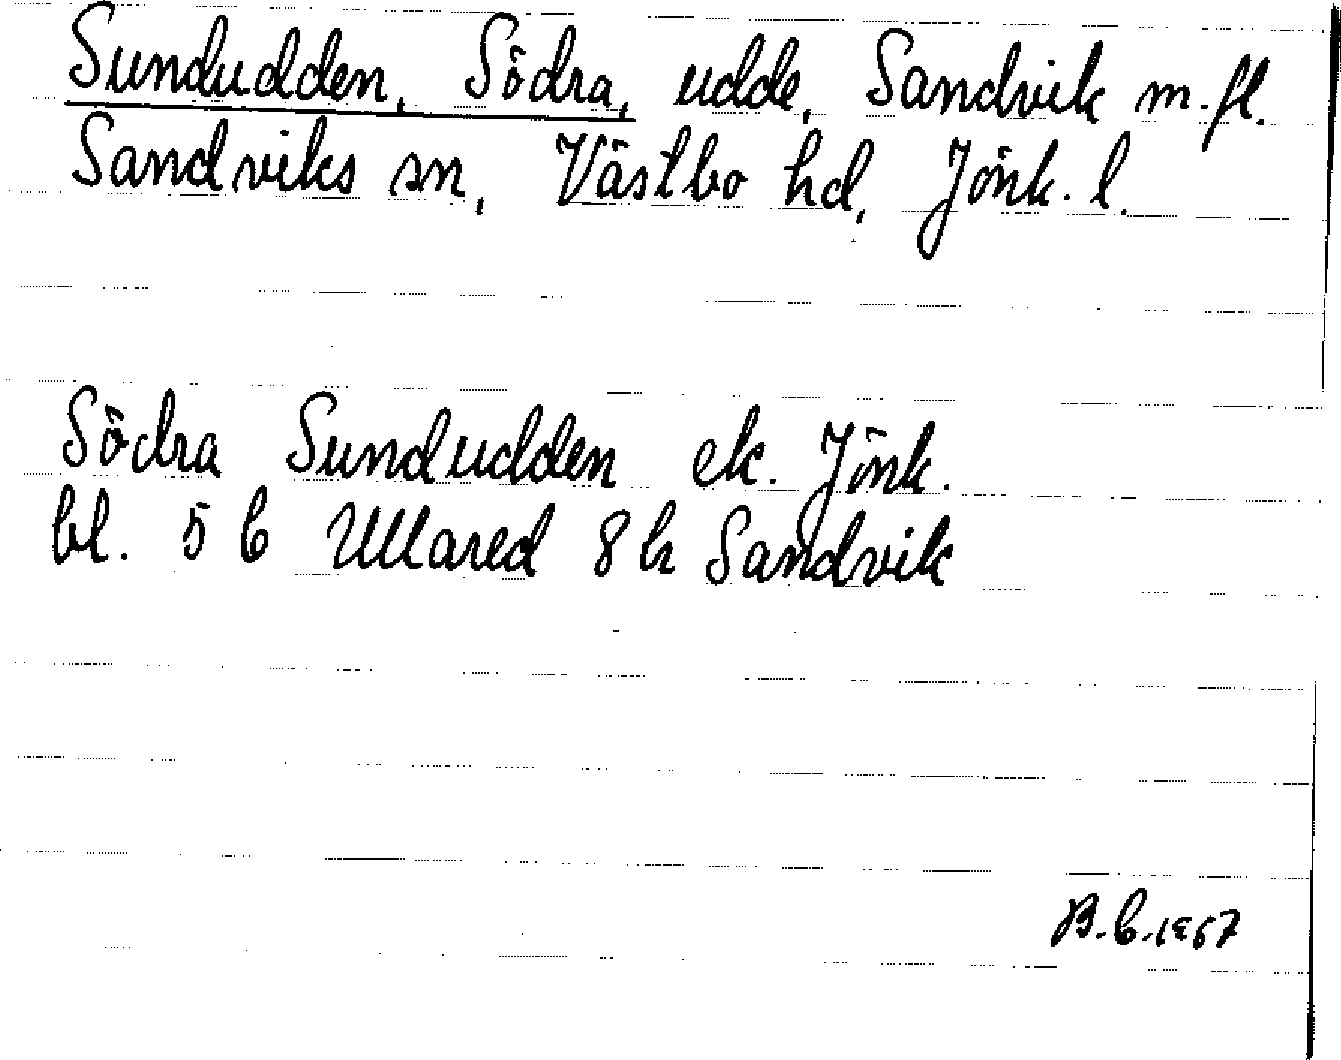 Sundudden, Södra, udde, Sandvik m.fl.
Sandviks sn, Västbo hd, Jönk. l.
Södra Sundudden ek. Jönk.
bl. 5 b Ullared 8 h Sandvik
B.b.1967